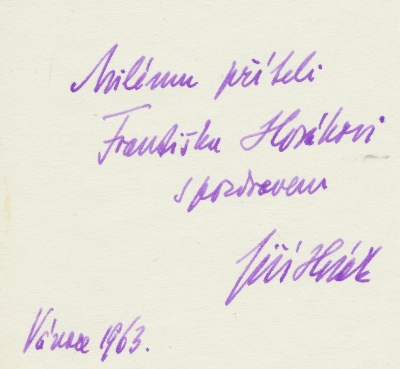 Milému příteli
Františku Horákovi
s pozdravem
Jiří Horák
Vánoce 1963.